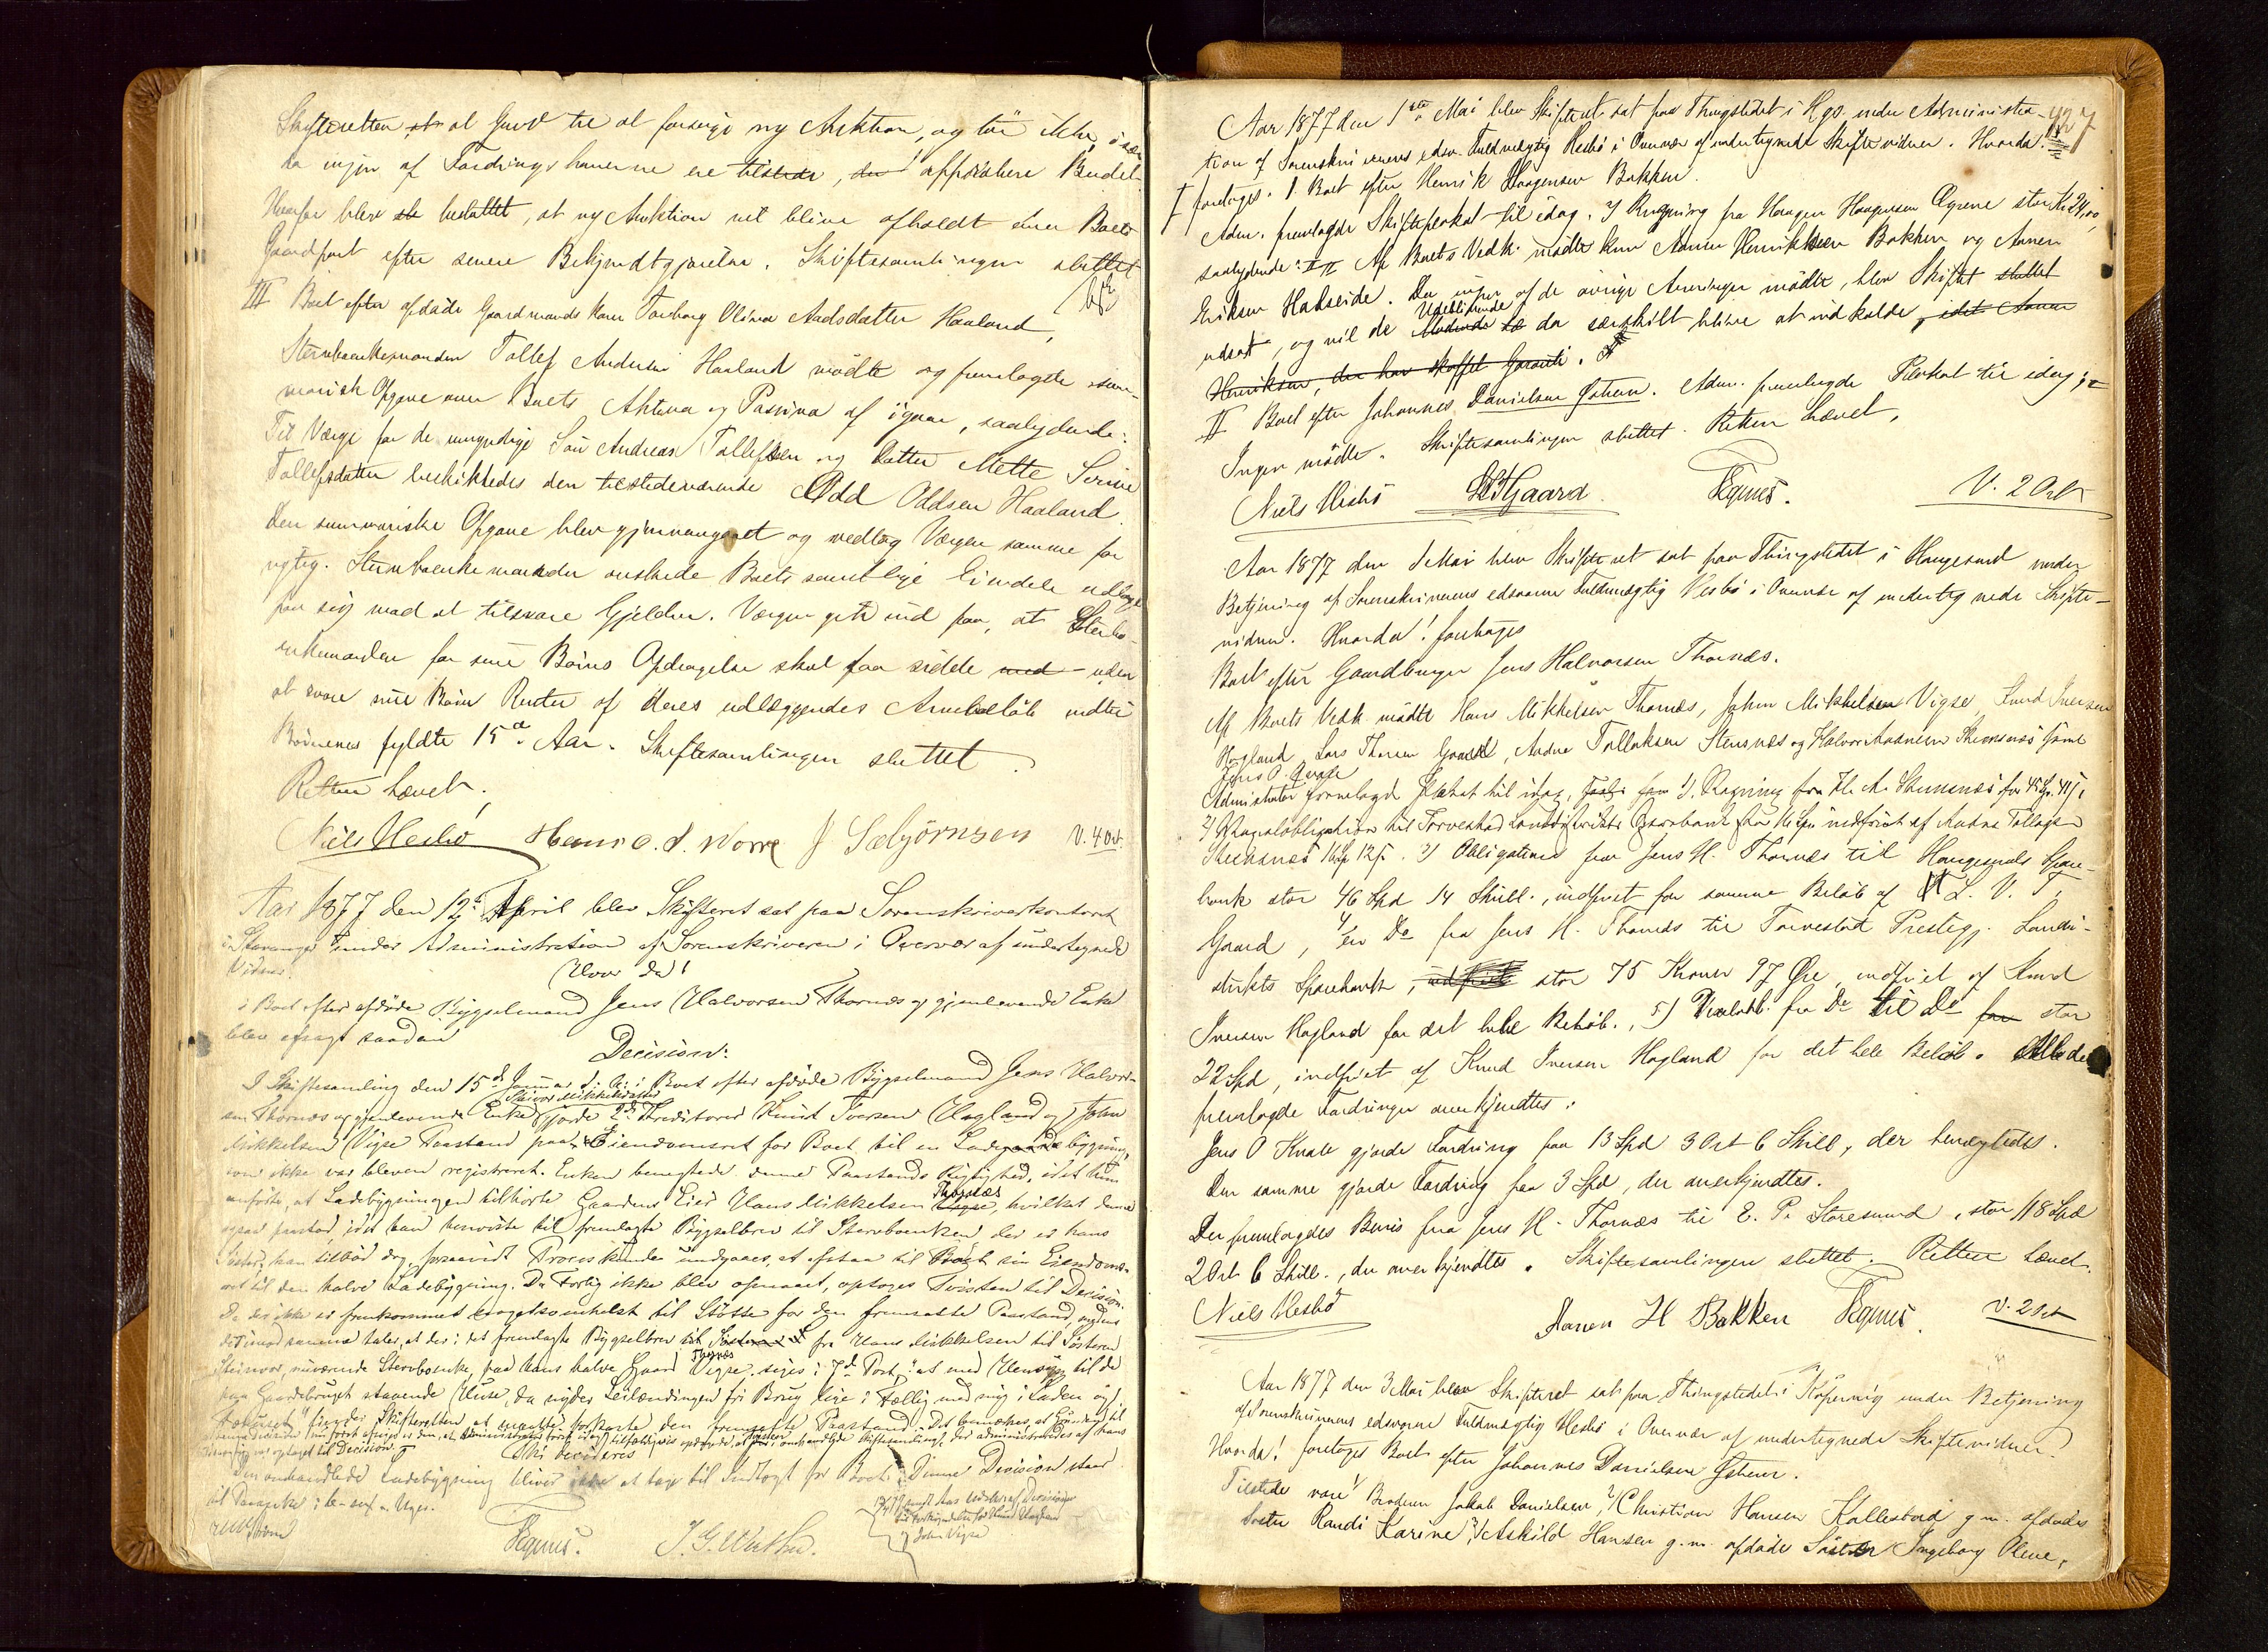 Skifteretten at Grund til at forsøge ny Auktion, og tør ikke, især
da ingen af Fordringshaverne ere tilstede, approbere Budet.
Herefter blev besluttet, at ny Auktion vil blive afholdt over Boets
Gaardpart efter senere Bekjendtgjørelse. Skiftesamlingen sluttet
III Boet efter afdøde Gaardmands Kone Torborg Olina Aadsdatter Haaland,
Sterboenkemanden Tollef Andersen Haaland mødte og fremlagde sum-
marisk Opgave over Boets Aktiva og Passiva af igaar, saalydende:
Til Værge for de umyndige Søn Andreas Tollefsen og Datter Mette Serine
Tollefsdatter beskikkedes den tilstedeværende Odd Oddsen Haaland.
Den summariske Opgave blev gjennemgaaet og vedtog Værgen samme for
rigtig. Sterboenkemanden ønskede Boets samtlige Eiendele udlagt
paa sig mod at tilsvare Gjælden. Værgen gik ind paa, at Sterbo-
enkemanden for sine Børns Opdragelse skal faa sidde med uden
at svare sine Børn Renter af deres udlæggendes Arvebeløb indtil
Børnenes fyldte 15de Aar. Skiftesamlingen sluttet.
Retten hævet.
Niels Hesbø Hans O. S. Worre J Sæbjørnsen V. 4 Ort.
Aar 1877 den 12te April blev Skifteret sat paa Sorenskriverkontoret
i Stavanger under Administration af Sorenskriveren i Overvær af undertegnede
Vidner. Hvor da!
i Boet efter afdøde Bygselmand Jens Halvorsen Thornæs og gjenlevende Enke
blev afsagt saadan
Decision:
I Skiftesamling den 15de Januar d. A. i Boet efter afdøde Bygselmand Jens Halvor-
sen Thornæs og gjenlevende Enke Mikkelsdatter gjorde 2de Kreditorer Knut Iversen Hagland og John
Mikkelsen Vigse Paastand paa Eiendomsret for Boet til en Ladebygning,
som ikke var bleven registreret. Enken benegtede denne Paastands Rigtighed, idet hun
anførte, at Ladebygningen tilhørte Gaardens Eier Hans Mikkelsen Thornæs, hvilket denne
ogsaa paastod, idet han henviste til fremlagte Bygselbrev til Sterboenken, der er hans
Søster; han tilbød dog, forsaavidt Proces kunde undgaaes, at afstaa til Boet sin Eiendoms-
ret til den halve Ladebygning. Da Forlig ikke blev opnaaet, optoges Tvisten til Decision.
Da der ikke er fremkommet nogetsomhelst til Støtte for den fremsatte Paastand,
derimod samme taler, at der i det fremlagte Bygselbrev fra Hans Mikkelsen til Søsteren
nuværende Sterboenke, paa hans halve Gaard Thornæs siges i 7de Post, "at med Hensyn til de
paa Gaardsbruget staaende Huse, da nyder Leilændingen fri Brug lige i Fællig med mig i Laden og
Fæhuset" finder Skifteretten at maatte forkaste den fremsatte Paastand.
Thi decideres
Den omhandlede Ladebygning bliver ikke at tage til Indtægt for Boet. Denne Decision staar
til Paaanke i 6 - sex - Uger.
Tegnes. J. G. Wuthe.
427
Aar 1877 den 1ste Mai blev Skifteret sat paa Thingstedet i Kgs. under Administra-
tion af Sorenskriverens edsv. Fuldmægtig Hesbø i Overvær af undertegnede Skiftevidner. Hvorda!
I foretoges. 1 Boet efter Henrik Haagensen Bakken.
Adm. fremlagde Skifteplakat til idag. Regning fra Haagen Haagensen Øyrene stor Kr 24,00,
saalydende: Af Boets Vedk. mødte kun Aanen Henriksen Bakken og Aanen
Eriksen Hakseide. Da ingen af de øvrige Arvinger mødte, blev Skiftet sluttet
udsat, og vil de Udeblivende da særskilt blive at indkalde, idet Aanen
Henriksen, der har skaffet Garanti.
II Boet efter Johannes Danielsen Østhem. Adm. fremlagde Plakat til idag;
Ingen mødte. Skiftesamlingen sluttet. Retten hævet.
Niels Hesbø Gaard. Tegnes. V. 2 Ort
Aar 1877 den 1 Mai blev Skifteret sat paa Thingstedet i Haugesund under
Betjening af Sorenskriverens edsvorne Fuldmægtig Hesbø i Overvær af undertegnede Skifte-
vidner. Hvorda! foretoges
Boet efter Gaardbruger Jens Halvorsen Thornæs.
Af Boets Vedk. mødte Hans Mikkelsen Thornæs, John Mikkelsen Vigse, Knud Iversen
Hagland, Lars Thorsen Gaard, Andre Tollaksen Stensnæs og Halvor Andresen samt
Jens O. Kvale
Administrator fremlagde Plakat til idag, 1) Regning fra H. A. Skeisnæs for
2) til Torvestad Landdistrikts Sparebank indfriet af Andre Tollagsen
16 Sp 12 s. 3) Obligation fra Jens H. Thornæs til Haugesunds Spare-
bank stor 46 Spd 14 Skill., indfriet for samme Beløb af L. V. T.
Gaard, 4) en Do fra Jens H. Thornæs til Torvestad Prestegj. Landdi-
strikts Sparebank, stor 75 Kroner 97 Øre, indfriet af Knud
Iversen Hagland for det hele Beløb., 5) fra Do til Do for stor
22 Spd, indfriet af Knud Iversen Hagland for det hele Beløb. Alle de
fremlagde Fordringer anerkjendtes.
Jens O Kvale gjorde Fordring paa 13 Spd 3 Ort 6 Skill, der benægtedes.
Den samme gjorde Fordring paa 3 Spd, der anerkjendtes.
Der fremlagdes Bevis fra Jens H. Thornæs til E. P. Storesund, stor 118 Spd
2 Ort 6 Skill., der anerkjendtes. Skiftesamlingen sluttet. Retten hævet.
Niels Hesbø Aanen H Bakken Tegnes. V. 2 Ort
Aar 1877 den 3 Mai blev Skifteret sat paa Thingstedet i Kopervig under Betjening
af Sorenskriverens edsvorne Fuldmægtig Hesbø i Overvær af undertegnede Skiftevidner
Hvorda! foretoges Boet efter Johannes Danielsen Østhem.
Tilstede vare 1/ Broderen Jakob Danielsen, 2/ Christian Hansen Kallestad g. m. afdødes
Søster Randi Karine, 3/ Askild Hansen g. m. afdødes Søster Ingeborg Oline,